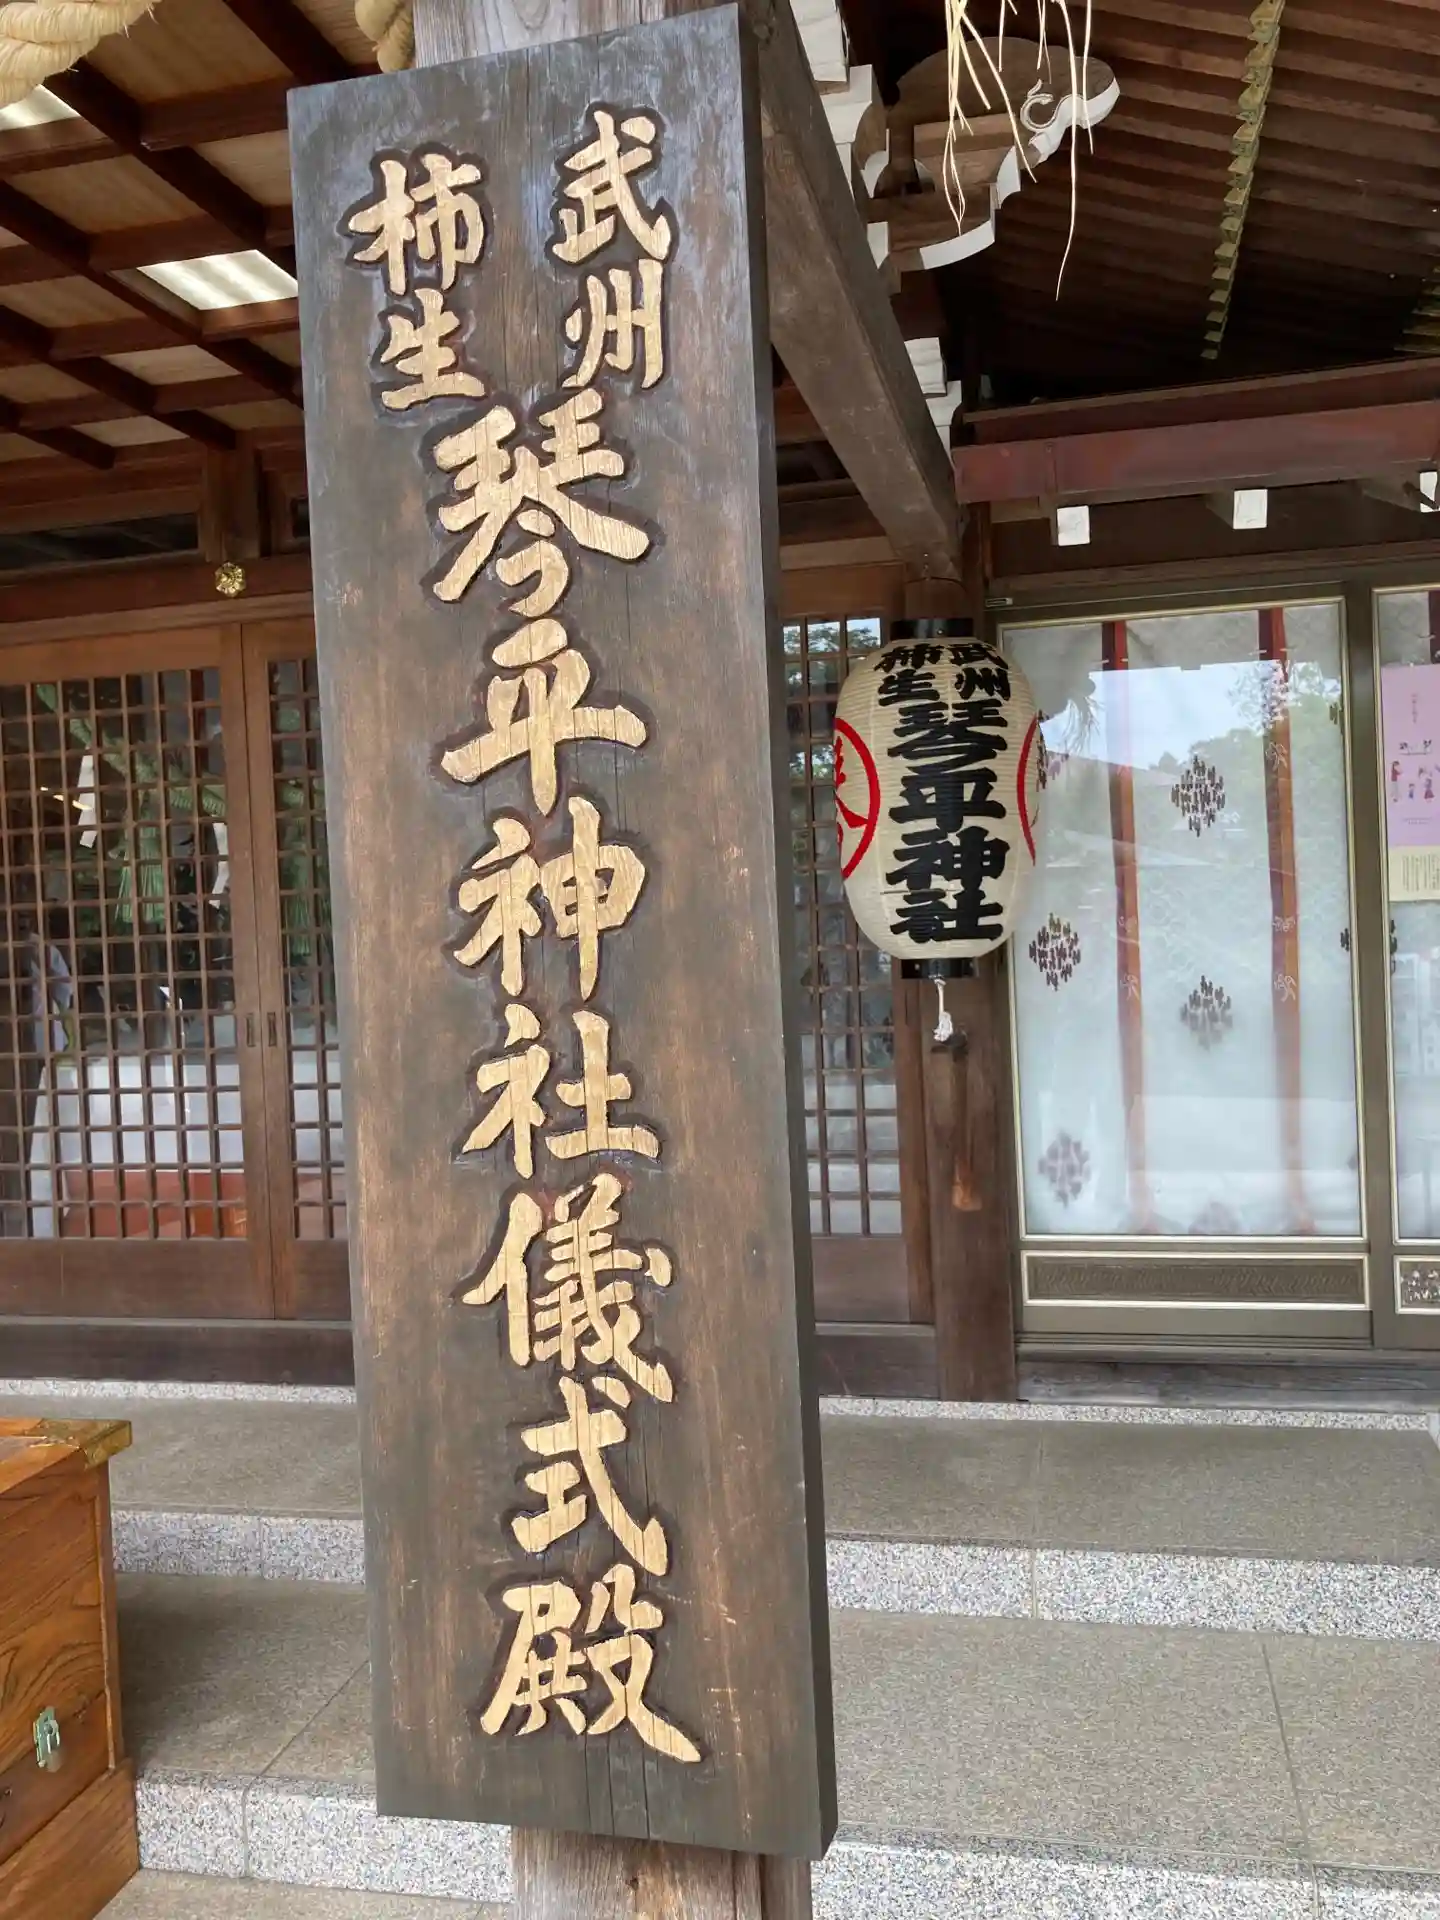 武州
柿生
琴平神社儀式殿
武州
柿生
琴平神社